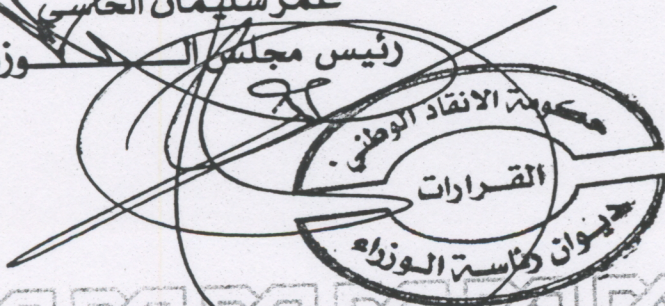 عمر سليمان الحاسي
رئيس مجلس الـــــوز
حكومة الانقاد الوطني
القـرارات
ديوان رئاسة الوزراء